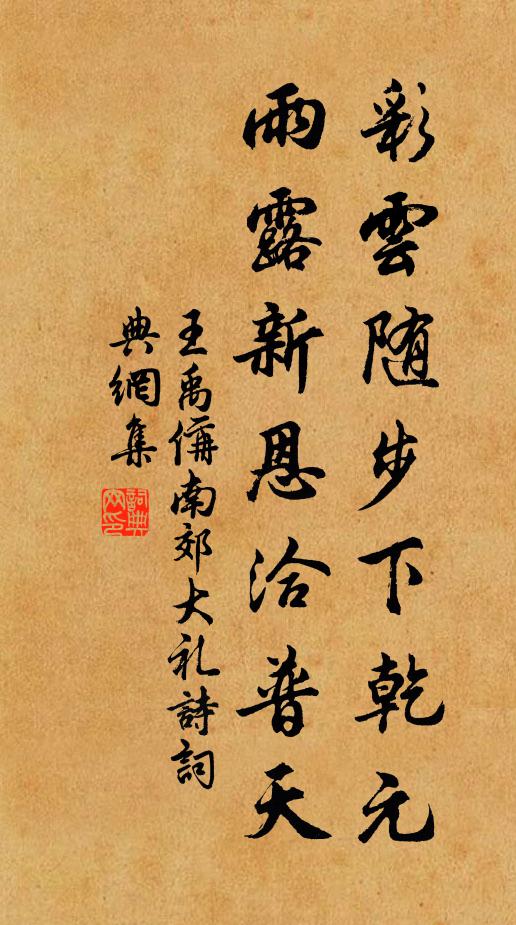 彩雲随步下乾元
雨露新恩洽普天
王禹偁南郊大礼詩詞
典網集
詞典
网印